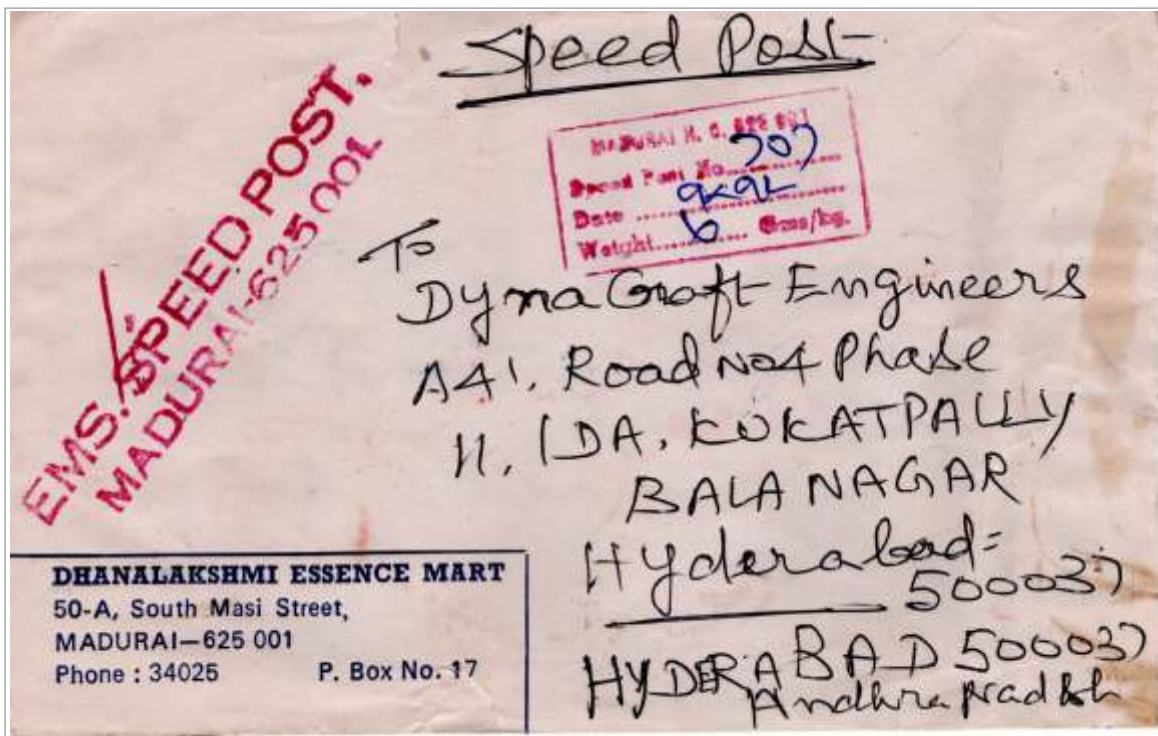 Speed Post
EMS. SPEED POST.
MADURAI-625001
MADURAI H. O. 625 001
Speed Post No. 707
Date
Weight 6 Gms/kg.
To
Dyna Craft Engineers
A41, Road No4 Phase
II, IDA, KUKATPALLY
BALANAGAR
Hyderabad=
500037
HYDERABAD 500037
Andhra Pradesh
DHANALAKSHMI ESSENCE MART
50-A, South Masi Street,
MADURAI—625 001
Phone : 34025 P. Box No. 17